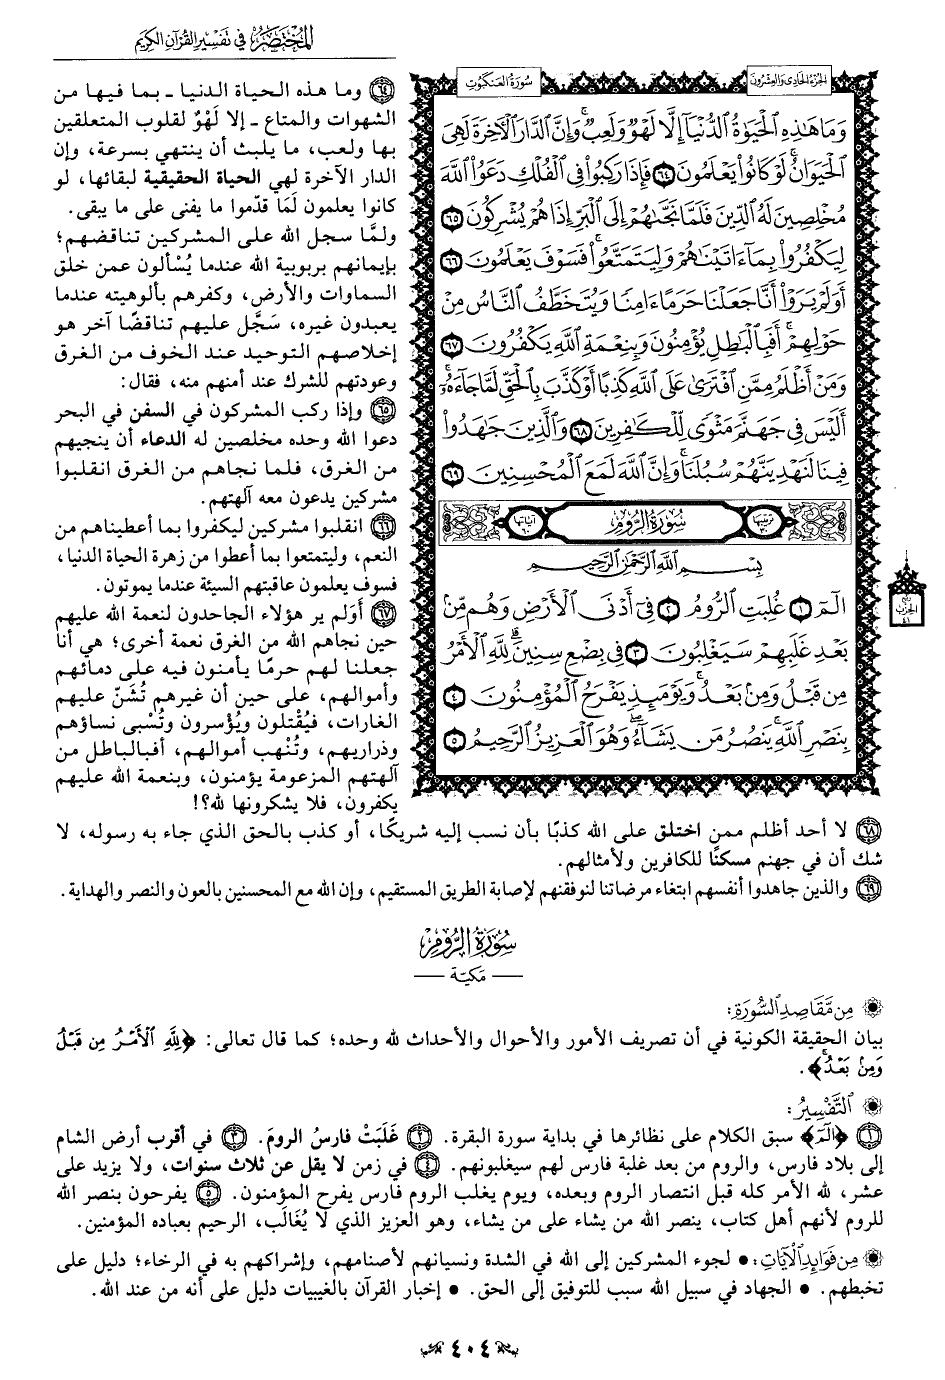 المختصر في تفسير القرآن الكريم
الجزء الحادي والعشرون
سورة العنكبوت
وَمَا هَٰذِهِ الْحَيَوٰةُ الدُّنْيَآ إِلَّا لَهْوٌ وَلَعِبٌ ۚ وَإِنَّ الدَّارَ الْآخِرَةَ لَهِيَ
الْحَيَوَانُ ۚ لَوْ كَانُوا يَعْلَمُونَ ٦٤ فَإِذَا رَكِبُوا فِي الْفُلْكِ دَعَوُا اللَّهَ
مُخْلِصِينَ لَهُ الدِّينَ فَلَمَّا نَجَّىٰهُمْ إِلَى الْبَرِّ إِذَا هُمْ يُشْرِكُونَ ٦٥
لِيَكْفُرُوا بِمَآ ءَاتَيْنَٰهُمْ وَلِيَتَمَتَّعُوا ۖ فَسَوْفَ يَعْلَمُونَ ٦٦
أَوَلَمْ يَرَوْا أَنَّا جَعَلْنَا حَرَمًا ءَامِنًا وَيُتَخَطَّفُ النَّاسُ مِنْ
حَوْلِهِمْ ۚ أَفَبِالْبَٰطِلِ يُؤْمِنُونَ وَبِنِعْمَةِ اللَّهِ يَكْفُرُونَ ٦٧
وَمَنْ أَظْلَمُ مِمَّنِ افْتَرَىٰ عَلَى اللَّهِ كَذِبًا أَوْ كَذَّبَ بِالْحَقِّ لَمَّا جَآءَهُۥٓ ۚ
أَلَيْسَ فِي جَهَنَّمَ مَثْوًى لِّلْكَٰفِرِينَ ٦٨ وَالَّذِينَ جَٰهَدُوا
فِينَا لَنَهْدِيَنَّهُمْ سُبُلَنَا ۚ وَإِنَّ اللَّهَ لَمَعَ الْمُحْسِنِينَ ٦٩
ترتيبها ٣٠ سُورَةُ الرُّومِ آياتها ٦٠
بِسْمِ اللَّهِ الرَّحْمَٰنِ الرَّحِيمِ
الٓمٓ ١ غُلِبَتِ الرُّومُ ٢ فِىٓ أَدْنَى الْأَرْضِ وَهُم مِّنۢ
بَعْدِ غَلَبِهِمْ سَيَغْلِبُونَ ٣ فِي بِضْعِ سِنِينَ ۗ لِلَّهِ الْأَمْرُ
مِن قَبْلُ وَمِنۢ بَعْدُ ۚ وَيَوْمَئِذٍ يَفْرَحُ الْمُؤْمِنُونَ ٤
بِنَصْرِ اللَّهِ ۚ يَنصُرُ مَن يَشَآءُ ۖ وَهُوَ الْعَزِيزُ الرَّحِيمُ ٥
ربع
الحزب
٤١
٦٤ وما هذه الحياة الدنيا ـ بما فيها من
الشهوات والمتاع ـ إلا لَهْوٌ لقلوب المتعلقين
بها ولعب، ما يلبث أن ينتهي بسرعة، وإن
الدار الآخرة لهي الحياة الحقيقية لبقائها، لو
كانوا يعلمون لَمَا قدّموا ما يفنى على ما يبقى.
ولمَّا سجل الله على المشركين تناقضهم؛
بإيمانهم بربوبية الله عندما يُسْألون عمن خلق
السماوات والأرض، وكفرهم بألوهيته عندما
يعبدون غيره، سَجَّل عليهم تناقضًا آخر هو
إخلاصهم التوحيد عند الخوف من الغرق
وعودتهم للشرك عند أمنهم منه، فقال:
٦٥ وإذا ركب المشركون في السفن في البحر
دعوا الله وحده مخلصين له الدعاء أن ينجيهم
من الغرق، فلما نجاهم من الغرق انقلبوا
مشركين يدعون معه آلهتهم.
٦٦ انقلبوا مشركين ليكفروا بما أعطيناهم من
النعم، وليتمتعوا بما أعطوا من زهرة الحياة الدنيا،
فسوف يعلمون عاقبتهم السيئة عندما يموتون.
٦٧ أَوَلم ير هؤلاء الجاحدون لنعمة الله عليهم
حين نجاهم الله من الغرق نعمة أخرى؛ هي أنا
جعلنا لهم حرمًا يأمنون فيه على دمائهم
وأموالهم، على حين أن غيرهم تُشَنّ عليهم
الغارات، فيُقْتلون ويُؤْسرون وتُسْبى نساؤهم
وذراريهم، وتُنْهب أموالهم، أفبالباطل من
آلهتهم المزعومة يؤمنون، وبنعمة الله عليهم
يكفرون، فلا يشكرونها لله؟!
٦٨ لا أحد أظلم ممن اختلق على الله كذبًا بأن نسب إليه شريكًا، أو كذب بالحق الذي جاء به رسوله، لا
شك أن في جهنم مسكنًا للكافرين ولأمثالهم.
٦٩ والذين جاهدوا أنفسهم ابتغاء مرضاتنا لنوفقنهم لإصابة الطريق المستقيم، وإن الله مع المحسنين بالعون والنصر والهداية.
سُورَةُ الرُّومِ
مكية
من مقاصد السورة:
بيان الحقيقة الكونية في أن تصريف الأمور والأحوال والأحداث لله وحده؛ كما قال تعالى: ﴿لِلَّهِ الْأَمْرُ مِن قَبْلُ
وَمِنۢ بَعْدُ﴾.
التفسير:
١ ﴿الٓمٓ﴾ سبق الكلام على نظائرها في بداية سورة البقرة. ٢ غَلَبَتْ فارسُ الرومَ. ٣ في أقرب أرض الشام
إلى بلاد فارس، والروم من بعد غلبة فارس لهم سيغلبونهم. ٤ في زمن لا يقل عن ثلاث سنوات، ولا يزيد على
عشر، لله الأمر كله قبل انتصار الروم وبعده، ويوم يغلب الروم فارس يفرح المؤمنون. ٥ يفرحون بنصر الله
للروم لأنهم أهل كتاب، ينصر الله من يشاء على من يشاء، وهو العزيز الذي لا يُغَالَب، الرحيم بعباده المؤمنين.
من فوائد الآيات: • لجوء المشركين إلى الله في الشدة ونسيانهم لأصنامهم، وإشراكهم به في الرخاء؛ دليل على
تخبطهم. • الجهاد في سبيل الله سبب للتوفيق إلى الحق. • إخبار القرآن بالغيبيات دليل على أنه من عند الله.
٤٠٤